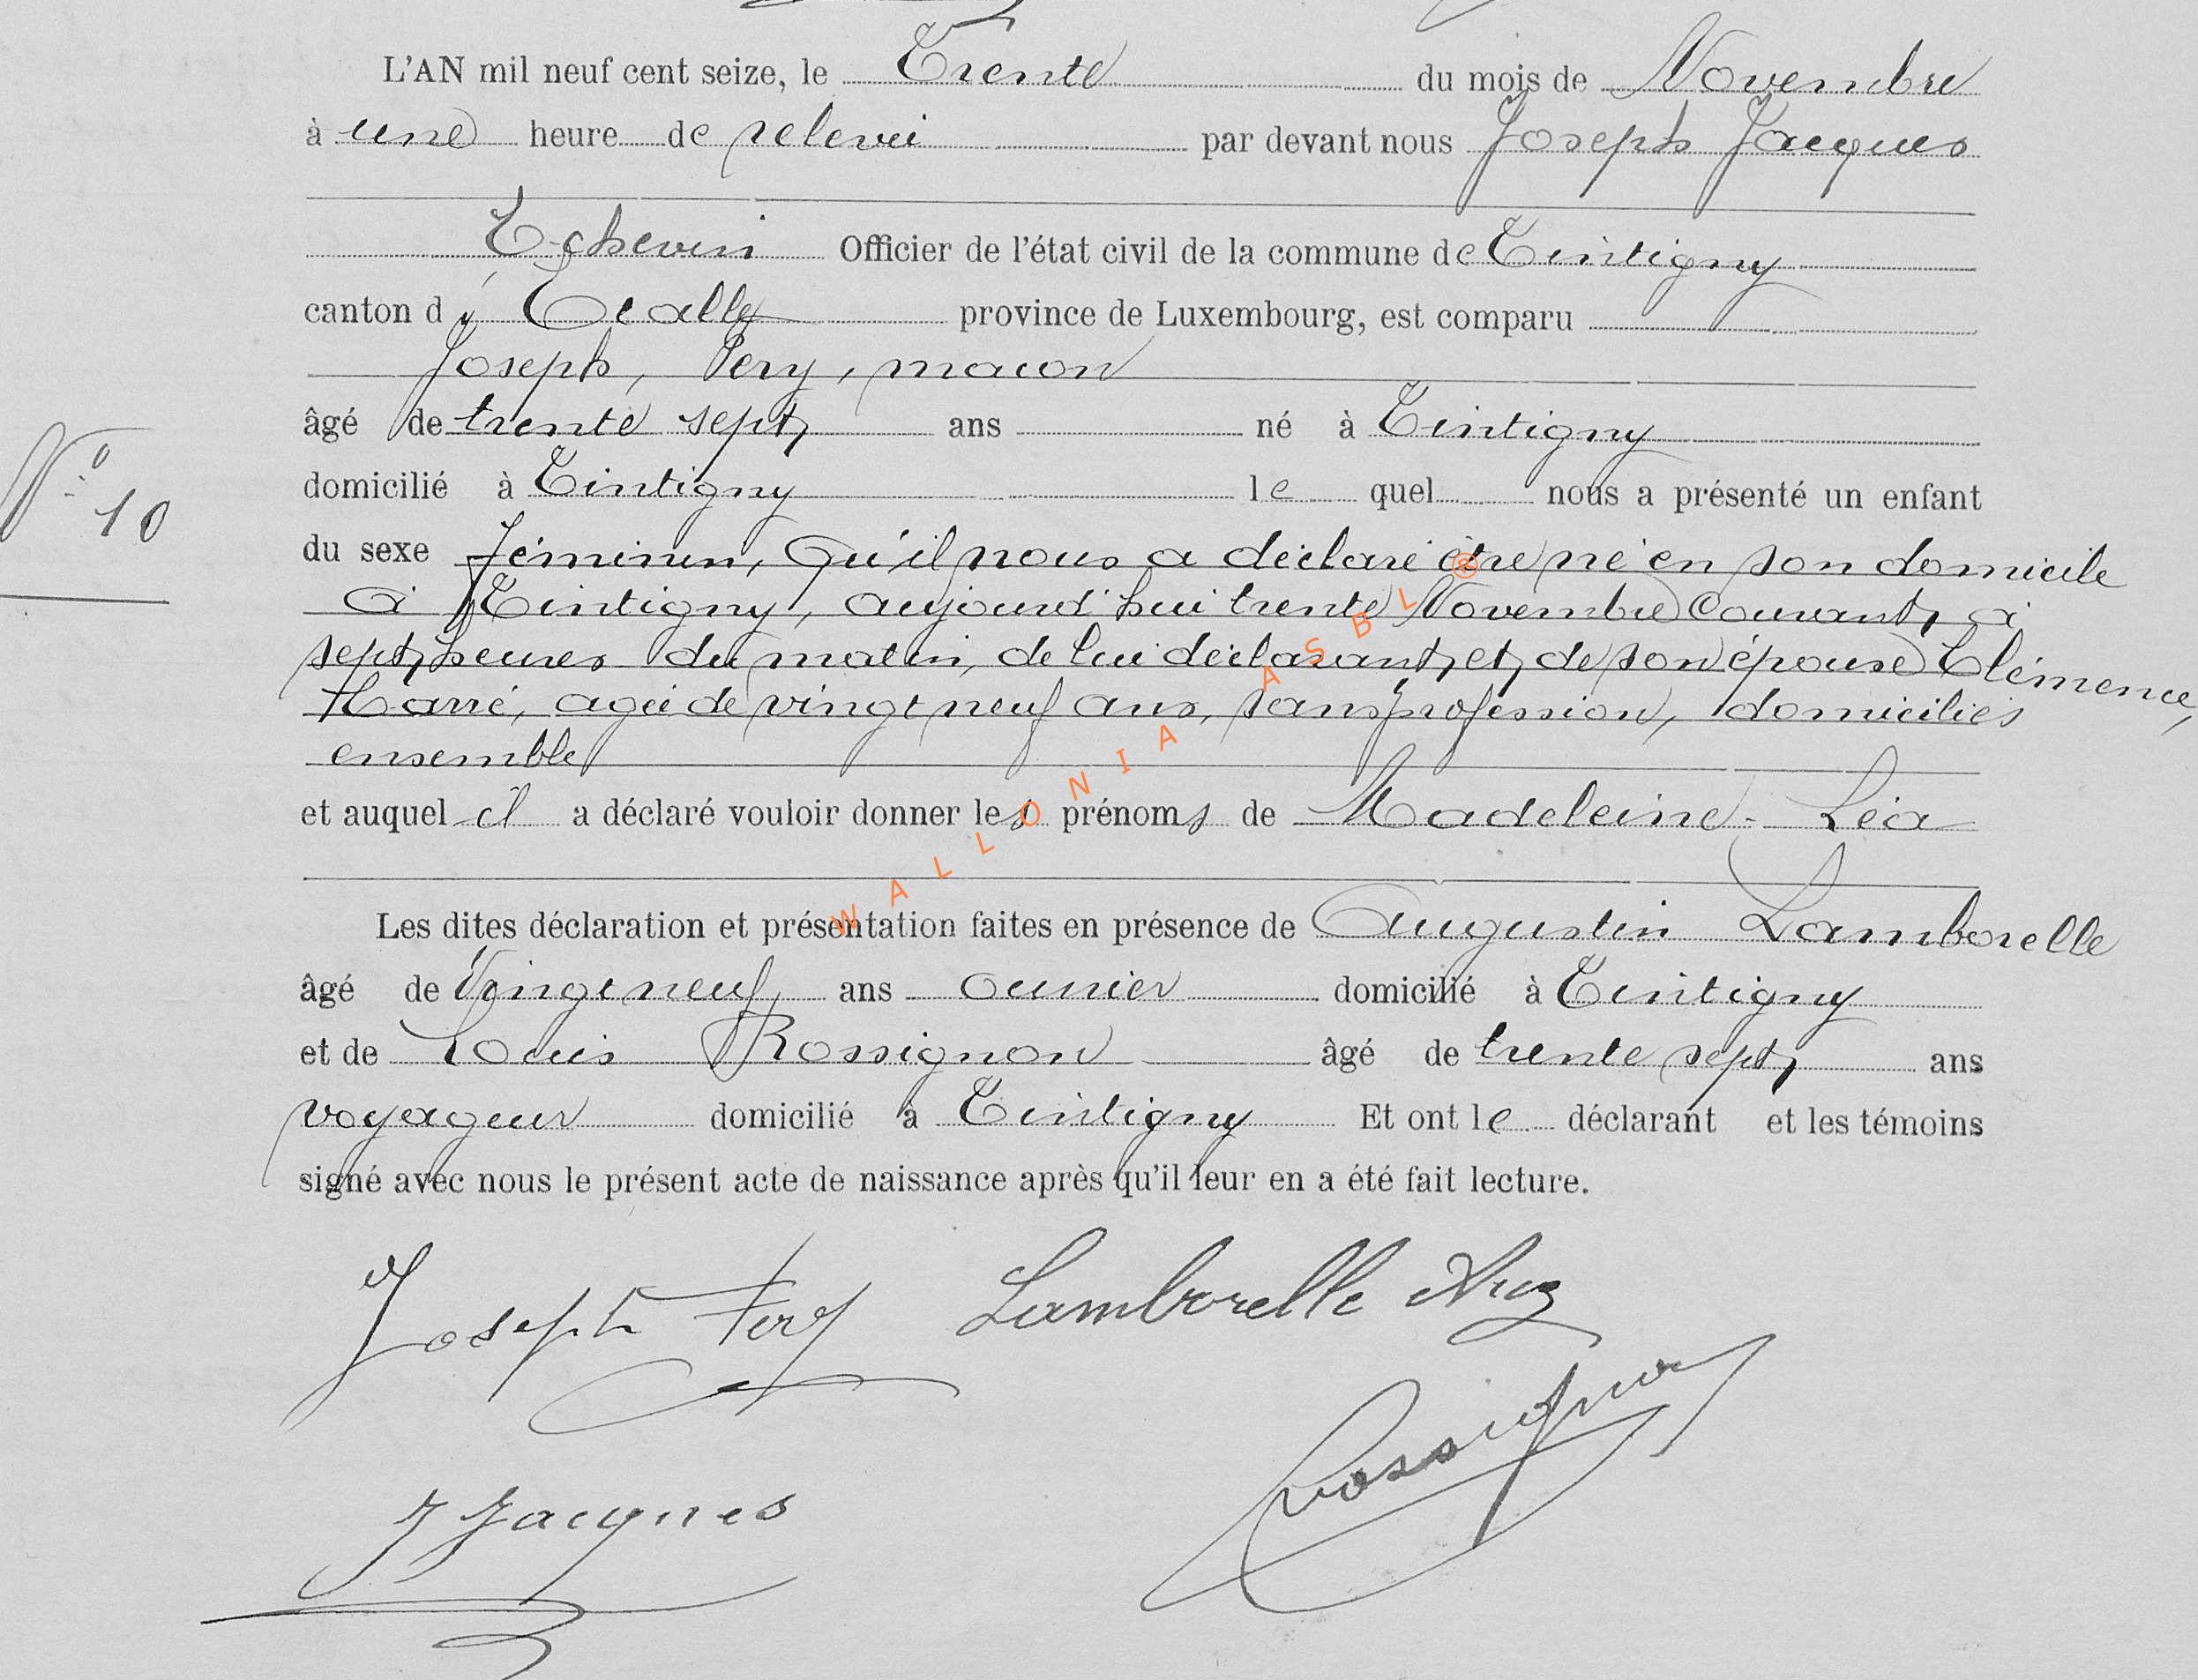 L'AN mil neuf cent seize, le Trente du mois de Novembre
à une heure de relevée par devant nous Joseph Jacques
Echevin Officier de l'état civil de la commune de Tintigny
canton d' Etalle province de Luxembourg, est comparu
Joseph, Fery, maçon
âgé de trente sept ans né à Tintigny
domicilié à Tintigny le quel nous a présenté un enfant
N° 10
du sexe féminin, qu'il nous a déclaré être né en son domicile
à Tintigny, aujourd'hui trente Novembre courant, à
sept heures du matin, de lui déclarant, et de son épouse Clémence
Harré, agée de vingt neuf ans, sans profession, domiciliés
ensemble
et auquel il a déclaré vouloir donner les prénoms de Madeleine - Léa
Les dites déclaration et présentation faites en présence de Augustin Lamborelle
âgé de Vingt neuf ans ouvrier domicilié à Tintigny
et de Louis Rossignon âgé de trente sept ans
voyageur domicilié à Tintigny Et ont le déclarant et les témoins
signé avec nous le présent acte de naissance après qu'il leur en a été fait lecture.
Joseph Fery Lamborelle Aug
Rossignon
J Jacques
WALLONIA ASBL ®